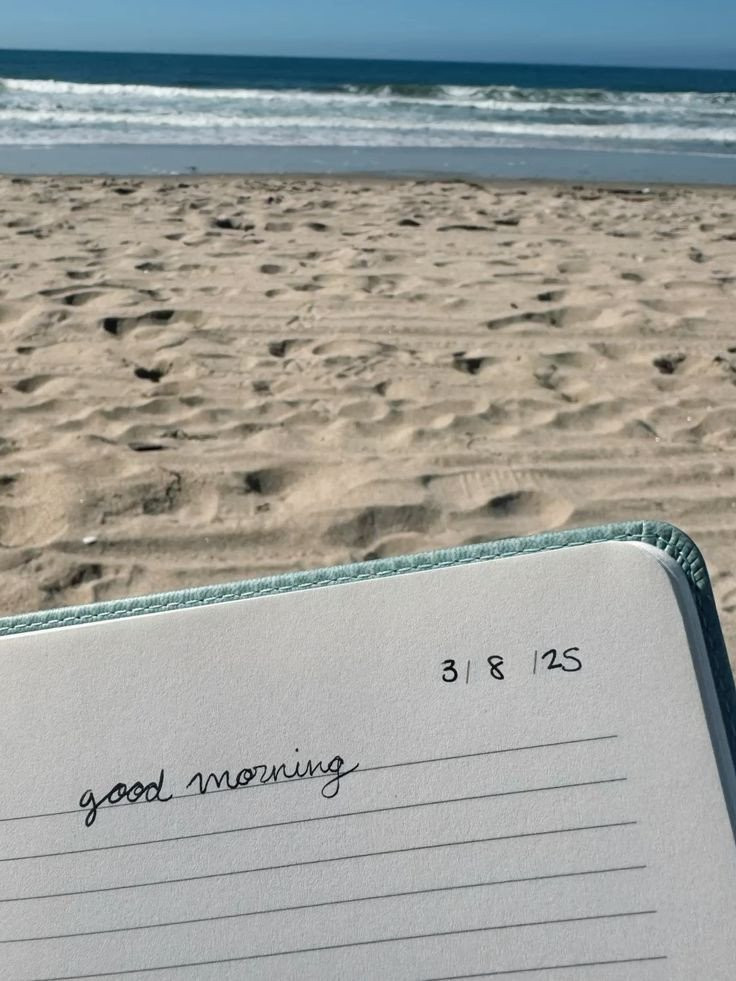 3/8/25
good morning